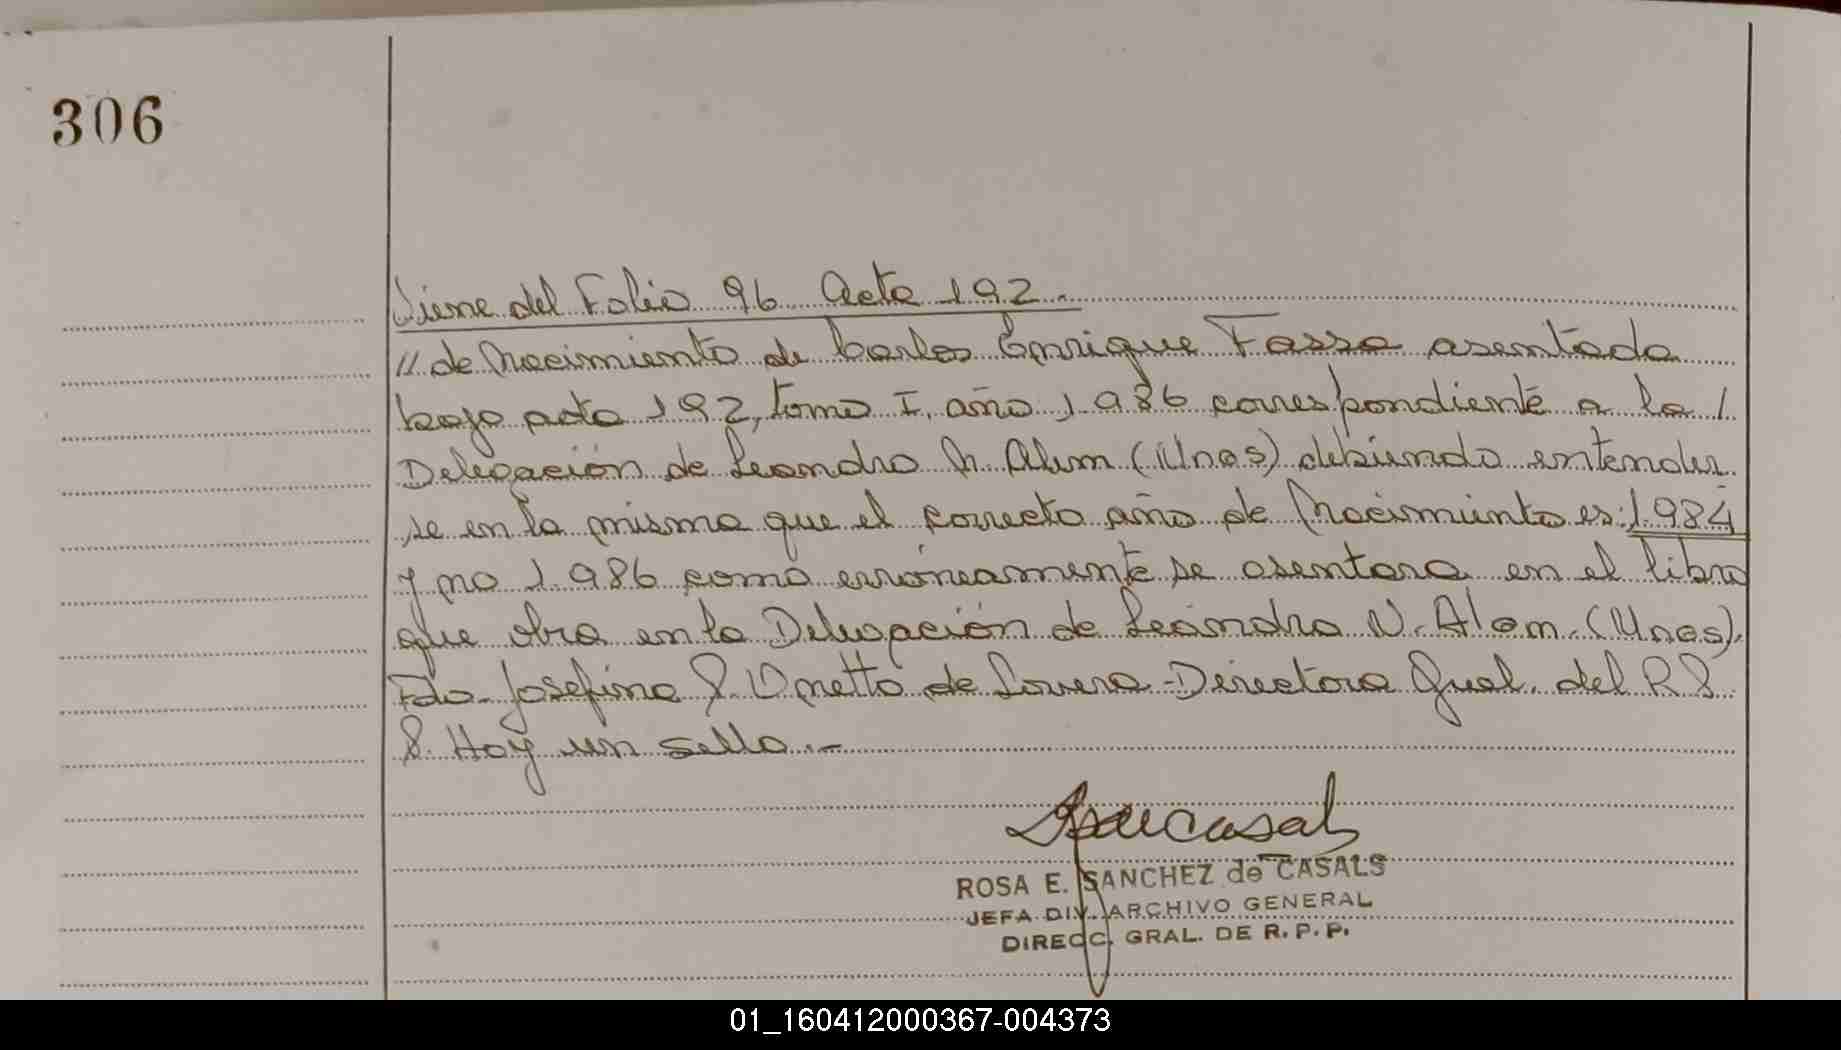 306
Viene del Folio 96 Acta 192.-
// de Nacimiento de Carlos Enrique Fasso asentada
bajo acta 192, tomo I, año 1.986 correspondiente a la /
Delegación de Leandro N. Alem (Mnes) debiendo entender
se en la misma que el correcto año de Nacimiento es: 1.984
y no 1.986 como erróneamente se asentara en el libro
que obra en la Delegación de Leandro N. Alem. (Mnes).
Fdo. Josefina P. Ometto de Lovera - Directora Gral. del R P
P. Hay un sello.-
ROSA E. SANCHEZ de CASALS
JEFA DIV. ARCHIVO GENERAL
DIRECC. GRAL. DE R. P. P.
01_160412000367-004373